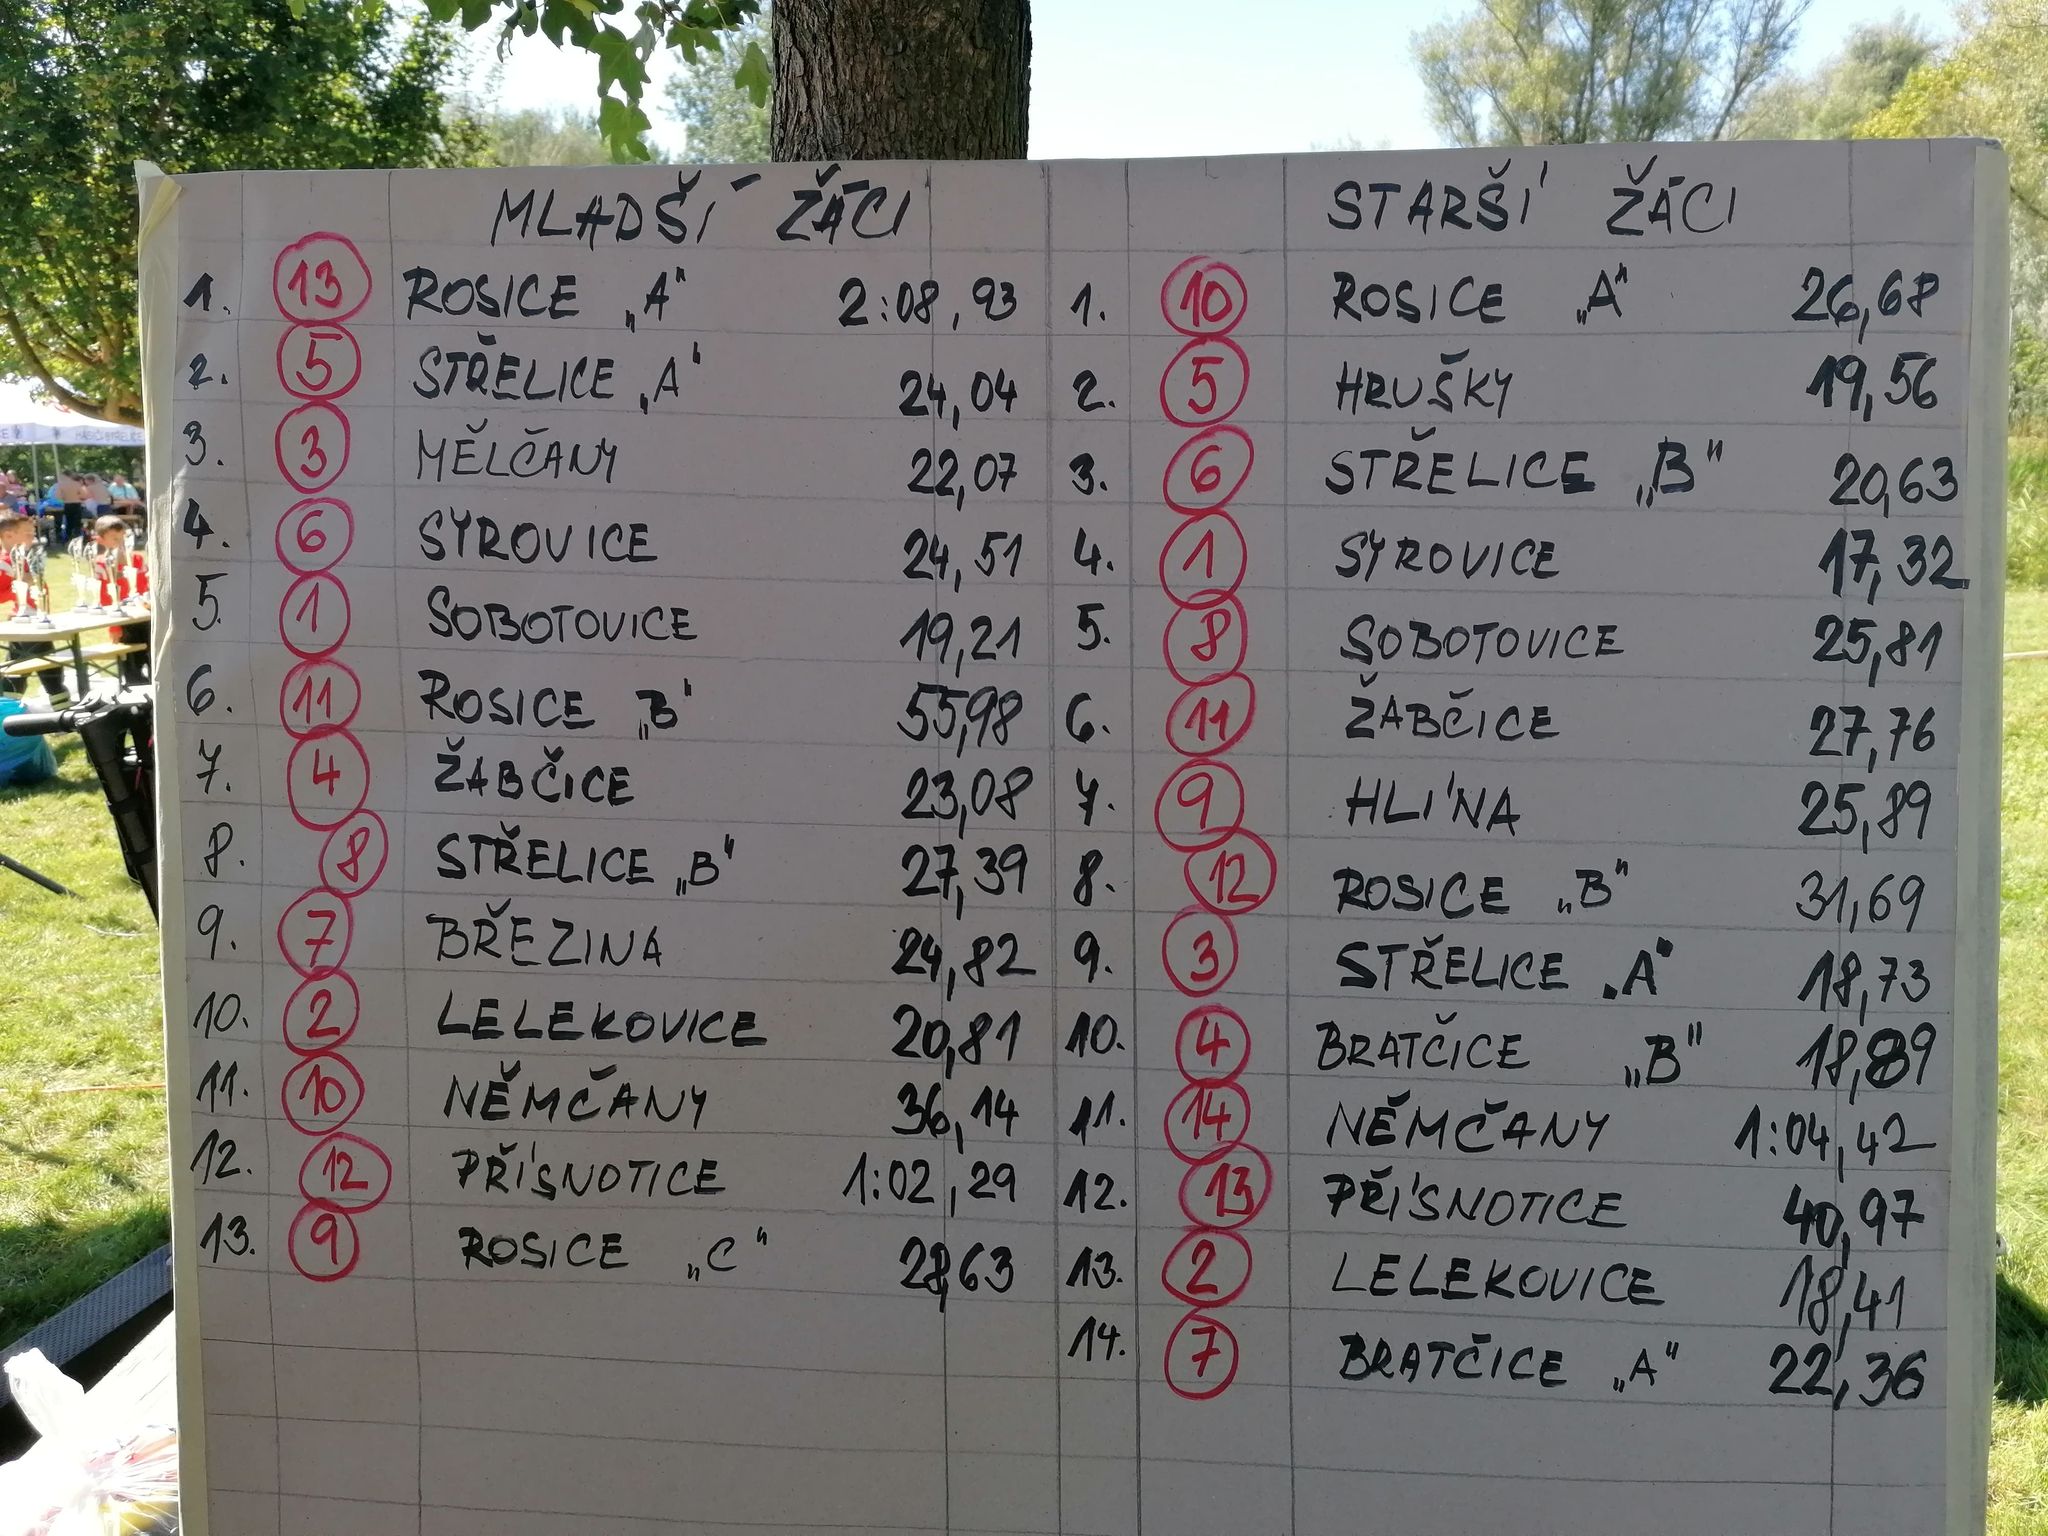 MLADŠÍ ŽÁCI
1. 13 ROSICE „A" 2:08,93
2. 5 STŘELICE „A" 24,04
3. 3 MĚLČANY 22,07
4. 6 SYROVICE 24,51
5. 1 SOBOTOVICE 19,21
6. 11 ROSICE „B" 55,98
7. 4 ŽABČICE 23,08
8. 8 STŘELICE „B" 27,39
9. 7 BŘEZINA 24,82
10. 2 LELEKOVICE 20,81
11. 10 NĚMČANY 36,14
12. 12 PŘÍSNOTICE 1:02,29
13. 9 ROSICE „C" 28,63
STARŠÍ ŽÁCI
1. 10 ROSICE „A" 26,68
2. 5 HRUŠKY 19,56
3. 6 STŘELICE „B" 20,63
4. 1 SYROVICE 17,32
5. 8 SOBOTOVICE 25,81
6. 11 ŽABČICE 27,76
7. 9 HLÍNA 25,89
8. 12 ROSICE „B" 31,69
9. 3 STŘELICE „A" 18,73
10. 4 BRATČICE „B" 18,89
11. 14 NĚMČANY 1:04,42
12. 13 PŘÍSNOTICE 40,97
13. 2 LELEKOVICE 18,41
14. 7 BRATČICE „A" 22,36